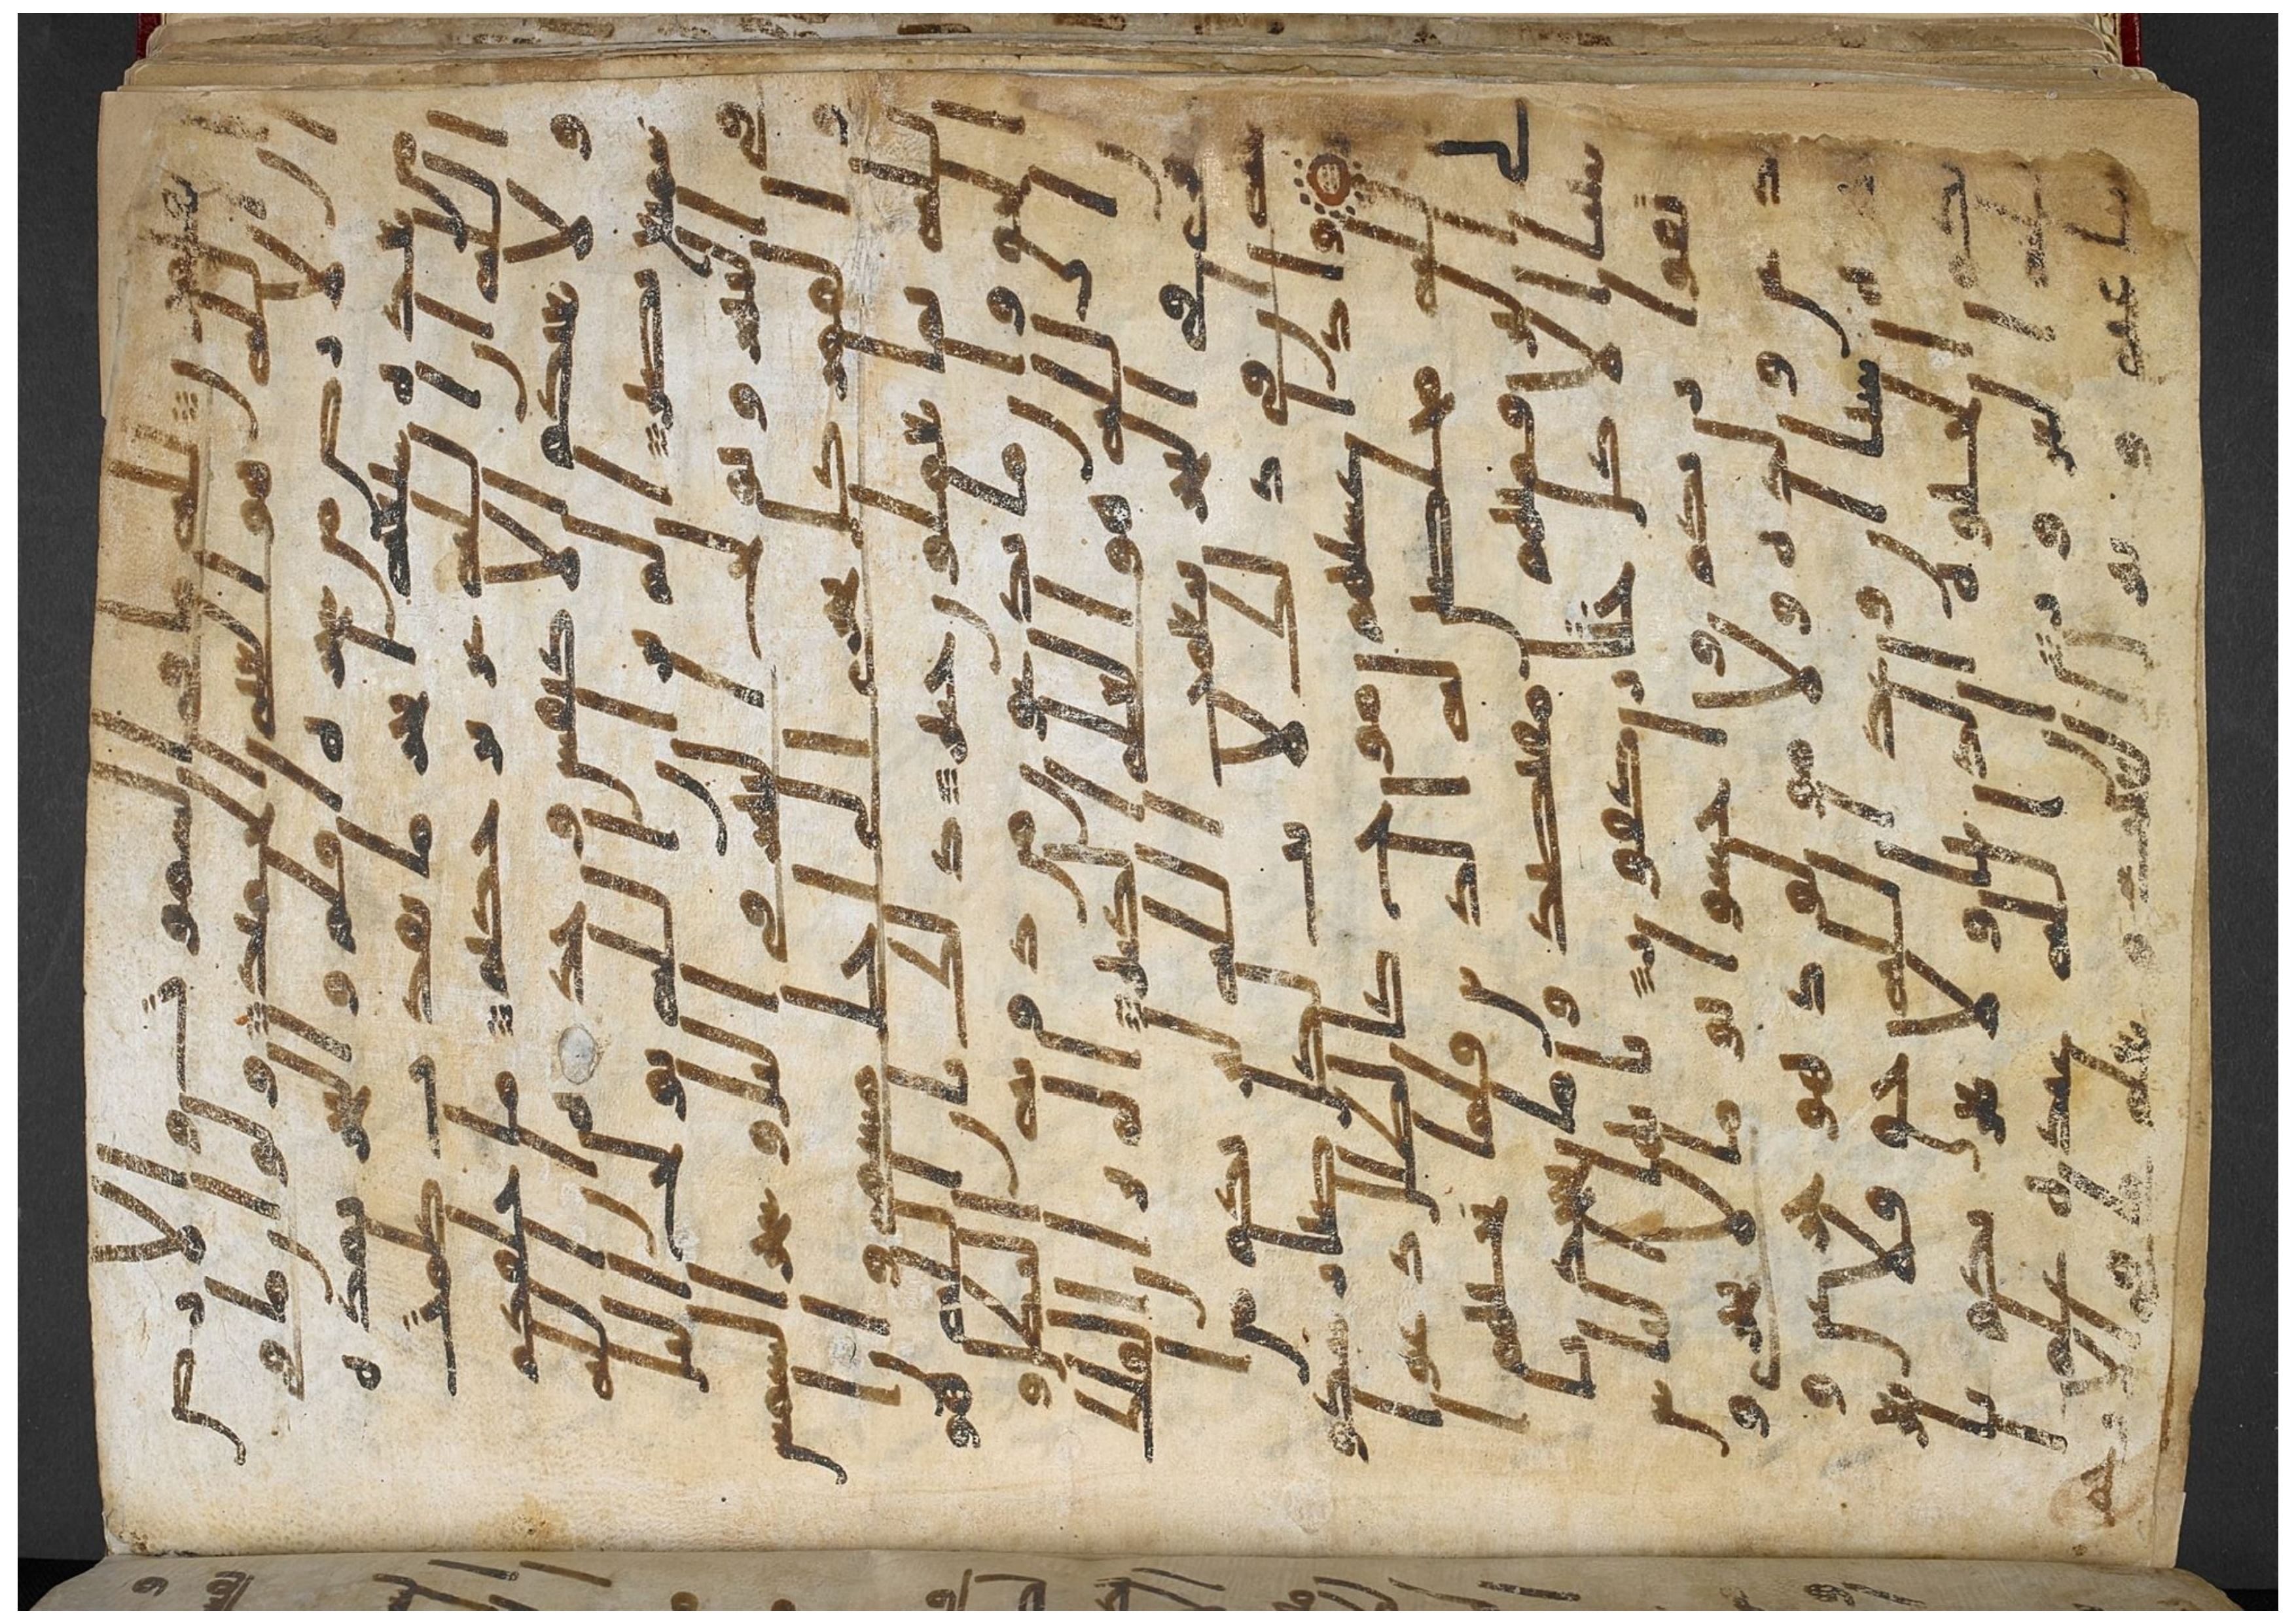 يعلمون لله ما في السموت والارض
ان الله هو الغني الحميد ولو ان ما في
الارض من شجرة اقلم والبحر يمده
من بعده سبعة ابحر ما نفدت كلمت
الله ان الله عزيز حكيم ما خلقكم
ولا بعثكم الا كنفس وحدة ان الله
سميع بصير الم تر ان الله يولج اليل
في النهار ويولج النهار في اليل وسخر الشمس
والقمر كل يجري الى اجل مسمى وان
الله بما تعملون خبير ذلك بان الله هو
الحق وان ما يدعون من دونه البطل و
ان الله هو العلي الكبير الم تر ان الفلك
تجري في البحر بنعمت الله ليريكم من
ايته ان في ذلك لايت لكل صبار شكو
ر واذا غشيهم موج كالظلل دعوا ا
لله مخلصين له الدين فلما نجيهم ا
لى البر فمنهم مقتصد وما يجحد بايتنا
الا كل ختار كفور يايها الناس
اتقوا ربكم واخشوا يوما لا يجزي و
لد عن ولده ولا مولود هو جاز عن و
لده شيا ان وعد الله حق فلا تغرنكم
الحيوة الدنيا ولا يغرنكم بالله ا
لغرور ان الله عنده علم الساعة
وينزل الغيث ويعلم ما في الا